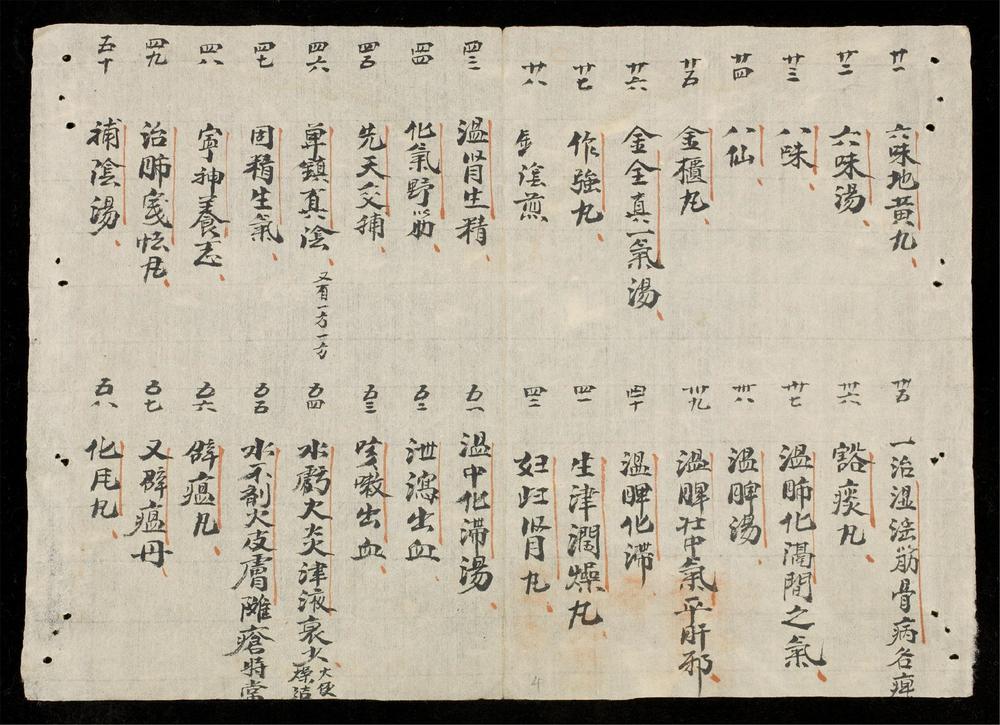 廿一 六味地黃丸
廿二 六味湯
廿三 八味
廿四 八仙
廿五 金櫃丸
廿六 金全真一氣湯
廿七 作強丸
廿八 陰煎
卅五 一治濕滛筋骨病名痺
卅六 豁痰丸
卅七 溫肺化滯間之氣
卅八 溫脾湯
卅九 溫脾壯中氣平肝邪
四十 溫脾化滯
四一 生津潤燥丸
四二 妇归肾丸
四三 溫肾生精
四四 化氣野
四五 先天交補
四六 單鎮真陰 又有一方一方
四七 固精生氣
四八 寧神養志
四九 治肺虛怯丸
五十 補陰湯
五一 溫中化滯湯
五二 泄瀉出血
五三 咳嗽出血
五四 水虧火炎津液衰少 大便燥結
五五 水不制火皮膚雕瘡時常
五六 辟瘟丸
五七 又辟瘟丹
五八 化丸